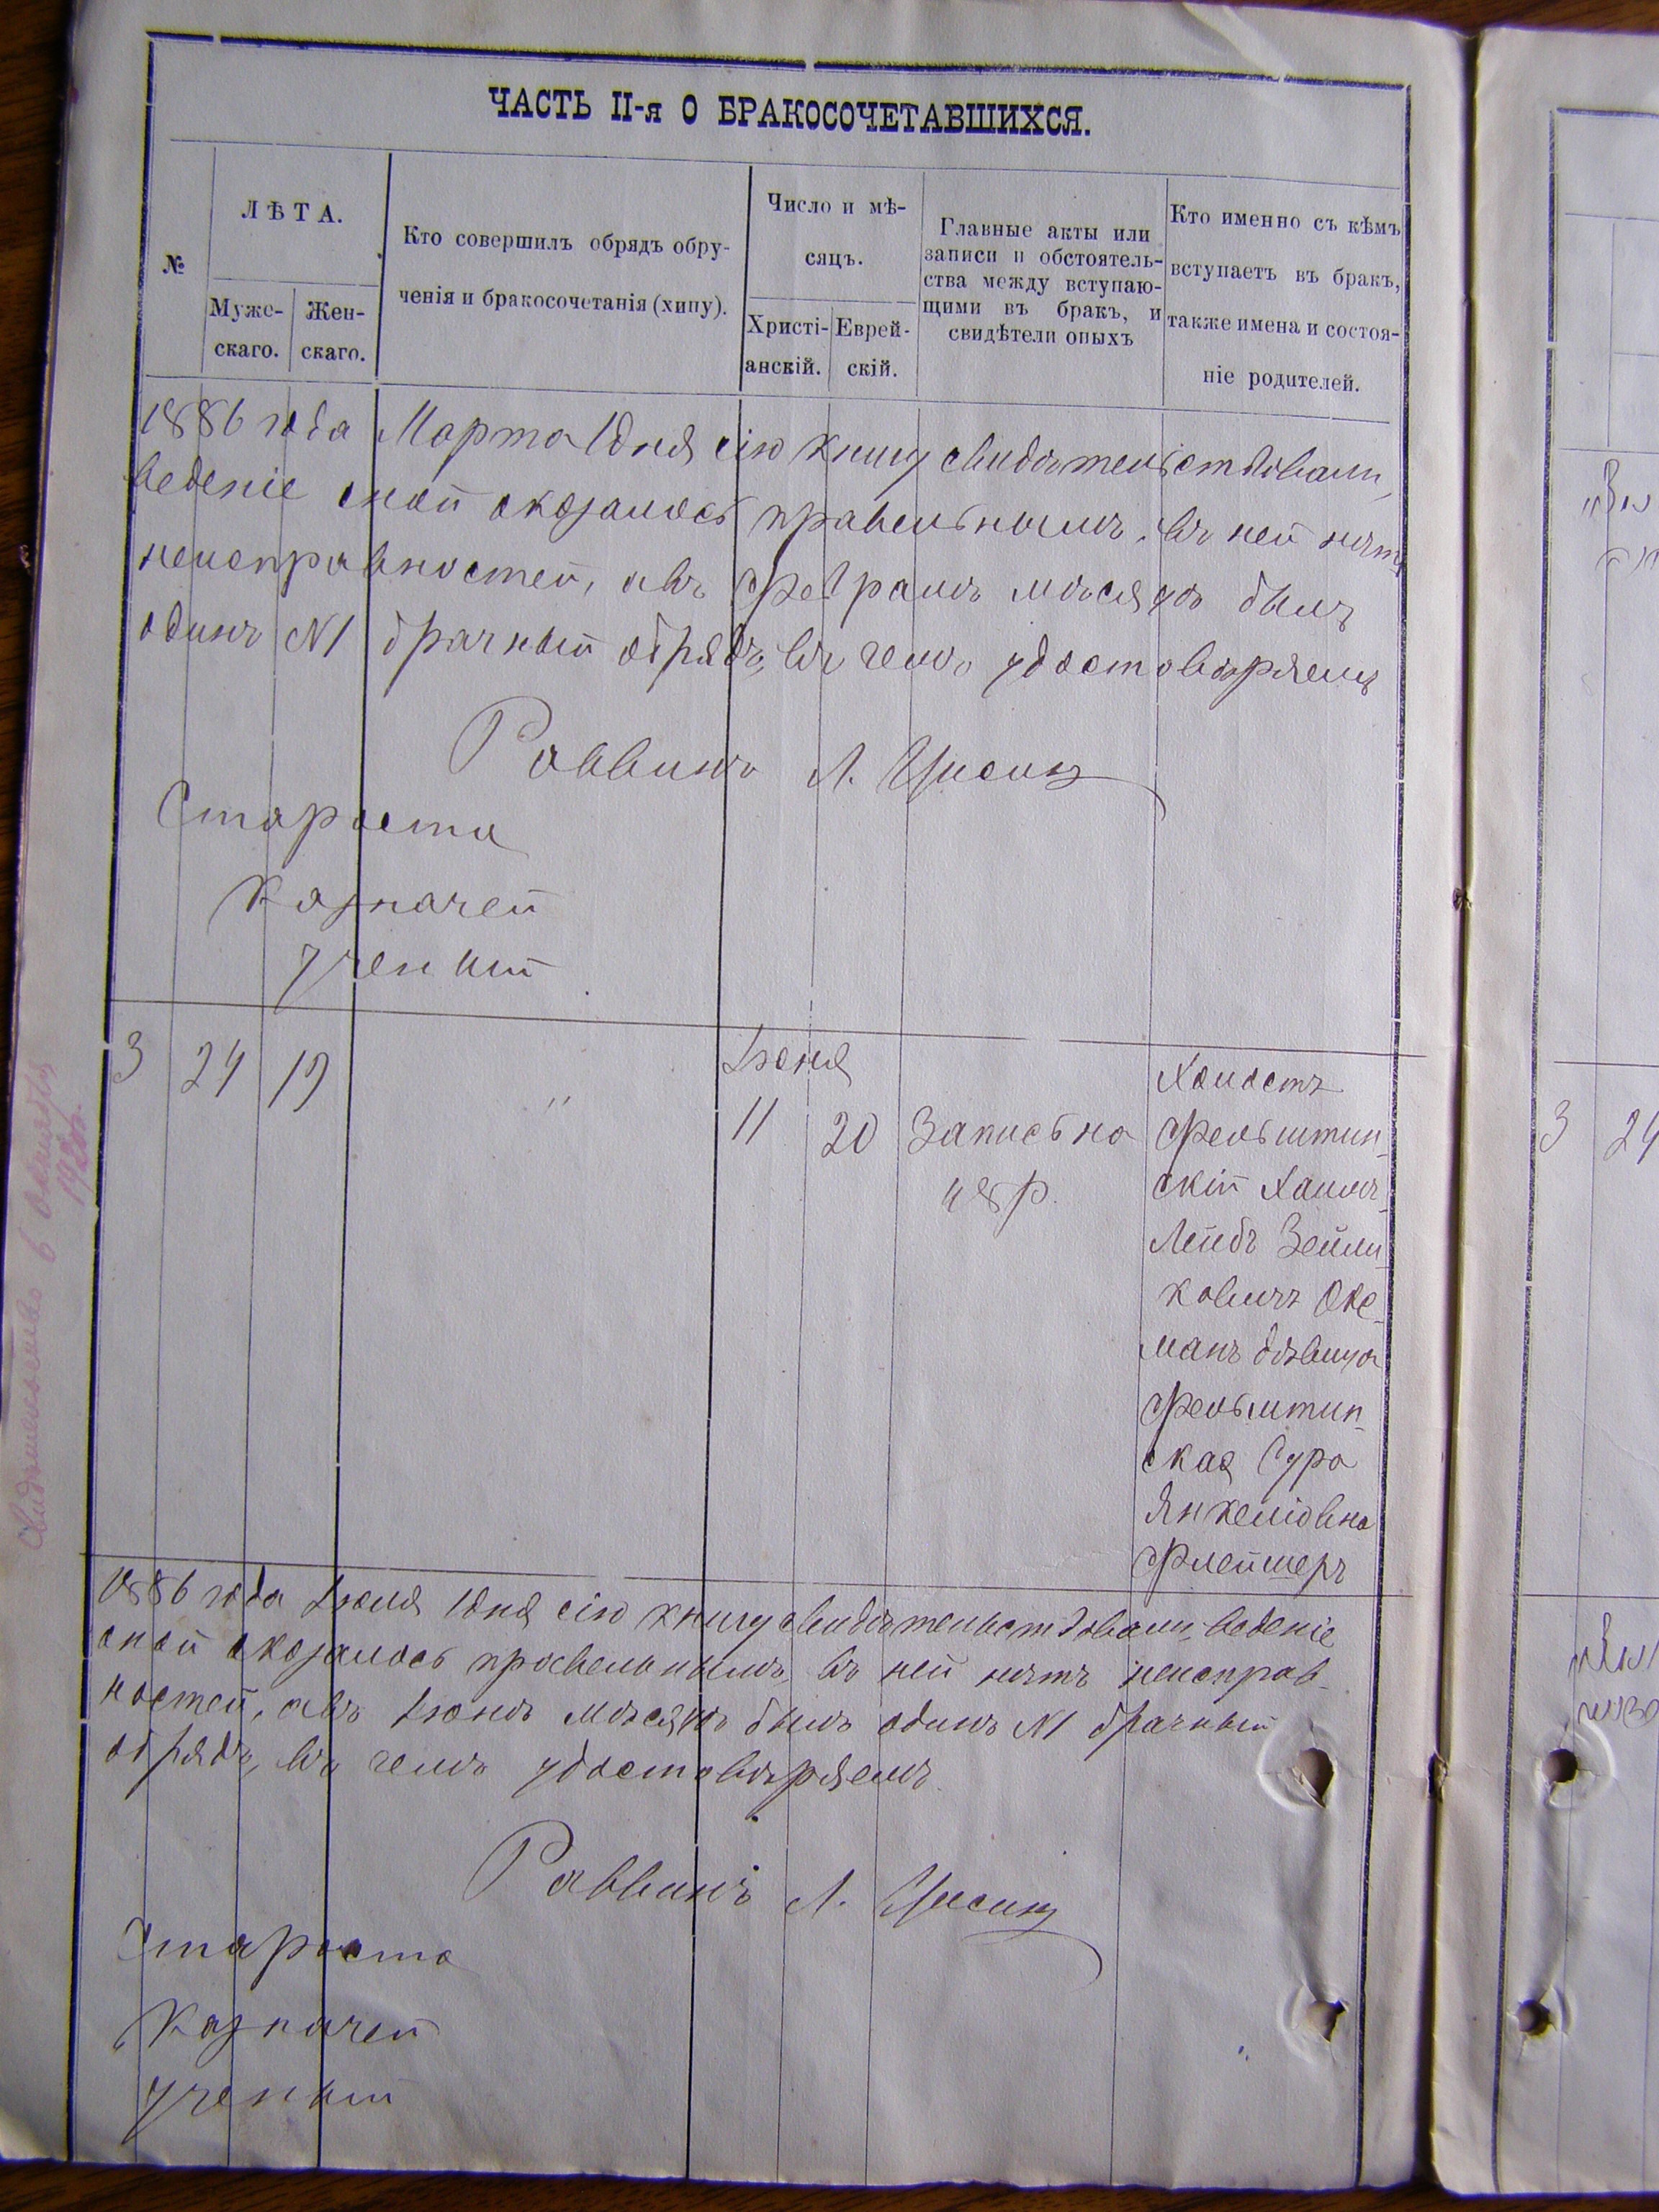 ЧАСТЬ II-я О БРАКОСОЧЕТАВШИХСЯ.
№
ЛѢТА.
Муже-
скаго.
Жен-
скаго.
Кто совершилъ обрядъ обру-
ченія и бракосочетанія (хипу).
Число и мѣ-
сяцъ.
Христі-
анскій.
Еврей-
скій.
Главные акты или
записи и обстоятель-
ства между вступаю-
щими въ бракъ, и
свидѣтели оныхъ
Кто именно съ кѣмъ
вступаетъ въ бракъ,
также имена и состоя-
ніе родителей.
1886 года Марта 1 дня сію книгу свидѣтельствовали,
веденіе оной оказалось правельнымъ, въ ней нѣтъ
неисправностей, а въ Февралѣ мѣсяцѣ былъ
одинъ N1 брачный обрядъ, въ чемъ удостовѣряемъ
Раввинъ Л.
Староста
Казначей
Ученый
3 24 19 " Іюня
11 20 Запись на
48 р.
Холостъ
Фельштин-
скій Хаимъ-
Лейбъ Зейли-
ковичъ Окс-
манъ дѣвица
Фельштин-
ская Сура
Янкеліовна
Флейшеръ
1886 года Іюля 1 дня сію книгу свидѣтельствовали, веденіе
оной оказалось правельнымъ, въ ней нѣтъ неисправ-
ностей, а въ Іюнѣ мѣсяцѣ былъ одинъ N1 брачный
обрядъ, въ чемъ удостовѣряемъ.
Раввинъ Л.
Староста
Казначей
Ученый
3 24